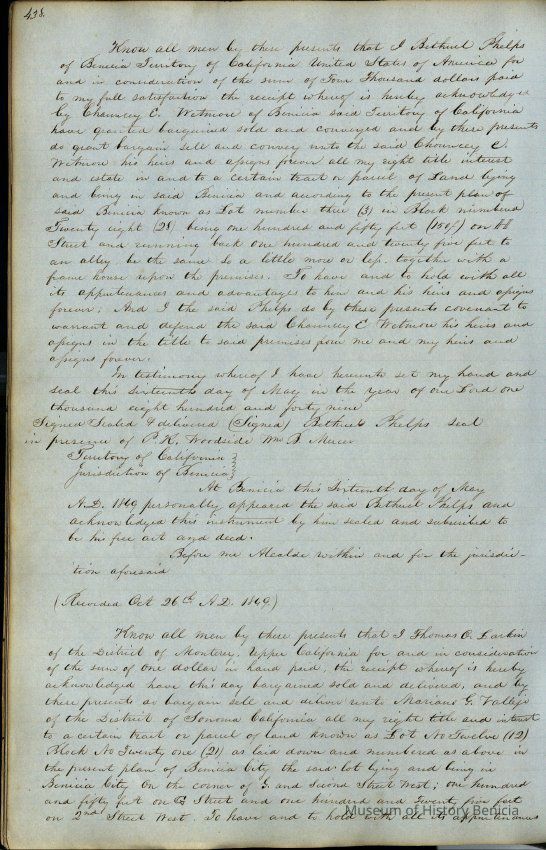 438.
Know all men by these presents that I Bethuel Phelps
of Benicia Territory of California United States of America for
and in consideration of the sum of Four Thousand dollars paid
to my full satisfaction the receipt whereof is hereby acknowledged
by Chauncey C. Wetmore of Benicia said Territory of California
have granted bargained sold and conveyed and by these presents
do grant bargain sell and convey unto the said Chauncey C.
Wetmore his heirs and assigns forever all my right title interest
and estate in and to a certain tract or parcel of Land lying
and being in said Benicia and according to the present plan of
said Benicia known as Lot number three (3) in Block numbered
Twenty eight (28) being one hundred and fifty feet (150f) on
Street and running back one hundred and twenty five feet to
an alley be the same so a little more or less. together with a
frame house upon the premises. To have and to hold with all
its appurtenances and advantages to him and his heirs and assigns
forever. And I the said Phelps do by these presents covenant to
warrant and defend the said Chauncey C Wetmore his heirs and
assigns in the title to said premises from me and my heirs and
assigns forever.
In testimony whereof I have hereunto set my hand and
seal this sixteenth day of May in the year of our Lord one
thousand eight hundred and forty nine
Signed Sealed & delivered (Signed) Bethuel Phelps seal
in presence of P. K. Woodside Wm B. Mercer
Territory of California
Jurisdiction of Benicia
At Benicia this Sixteenth day of May
A.D. 1849 personally appeared the said Bethuel Phelps and
acknowledged this instrument by him sealed and subscribed to
be his free act and deed.
Before me Alcalde within and for the jurisdic-
tion aforesaid
(Recorded Oct 26th A.D. 1849)
Know all men by these presents that I Thomas O. Larkin
of the District of Monterey, Upper California for and in consideration
of the sum of One dollar in hand paid, the receipt whereof is hereby
acknowledged have this day bargained sold and delivered, and by
these presents do bargain sell and deliver unto Mariano G. Vallejo
of the District of Sonoma California all my right title and interest
to a certain tract or parcel of land known as Lot No Twelve (12)
Block No Twenty one (21) as laid down and numbered as above in
the present plan of Benicia City the said lot lying and being in
Benicia City On the corner of G. and Second Street West; one hundred
and fifty feet on G Street and one hundred and twenty five feet
on 2nd Street West. To have and to hold with all its appurtenances
Museum of History Benicia